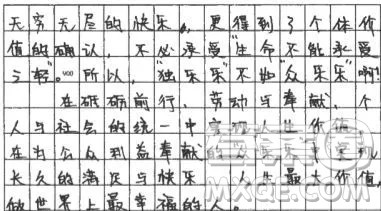 无穷无尽的快乐，更得到了个体价
值的确认，不必承受"生命不能承受
之轻"。800所以，"独乐乐"不如"众乐乐"啊!
在砥砺前行，劳动与奉献，个
人与社会的统一中实现人生价值，
在为公众利益奉献的
长久的满足与快乐，人生最大价值，
做世界上最幸福的人。